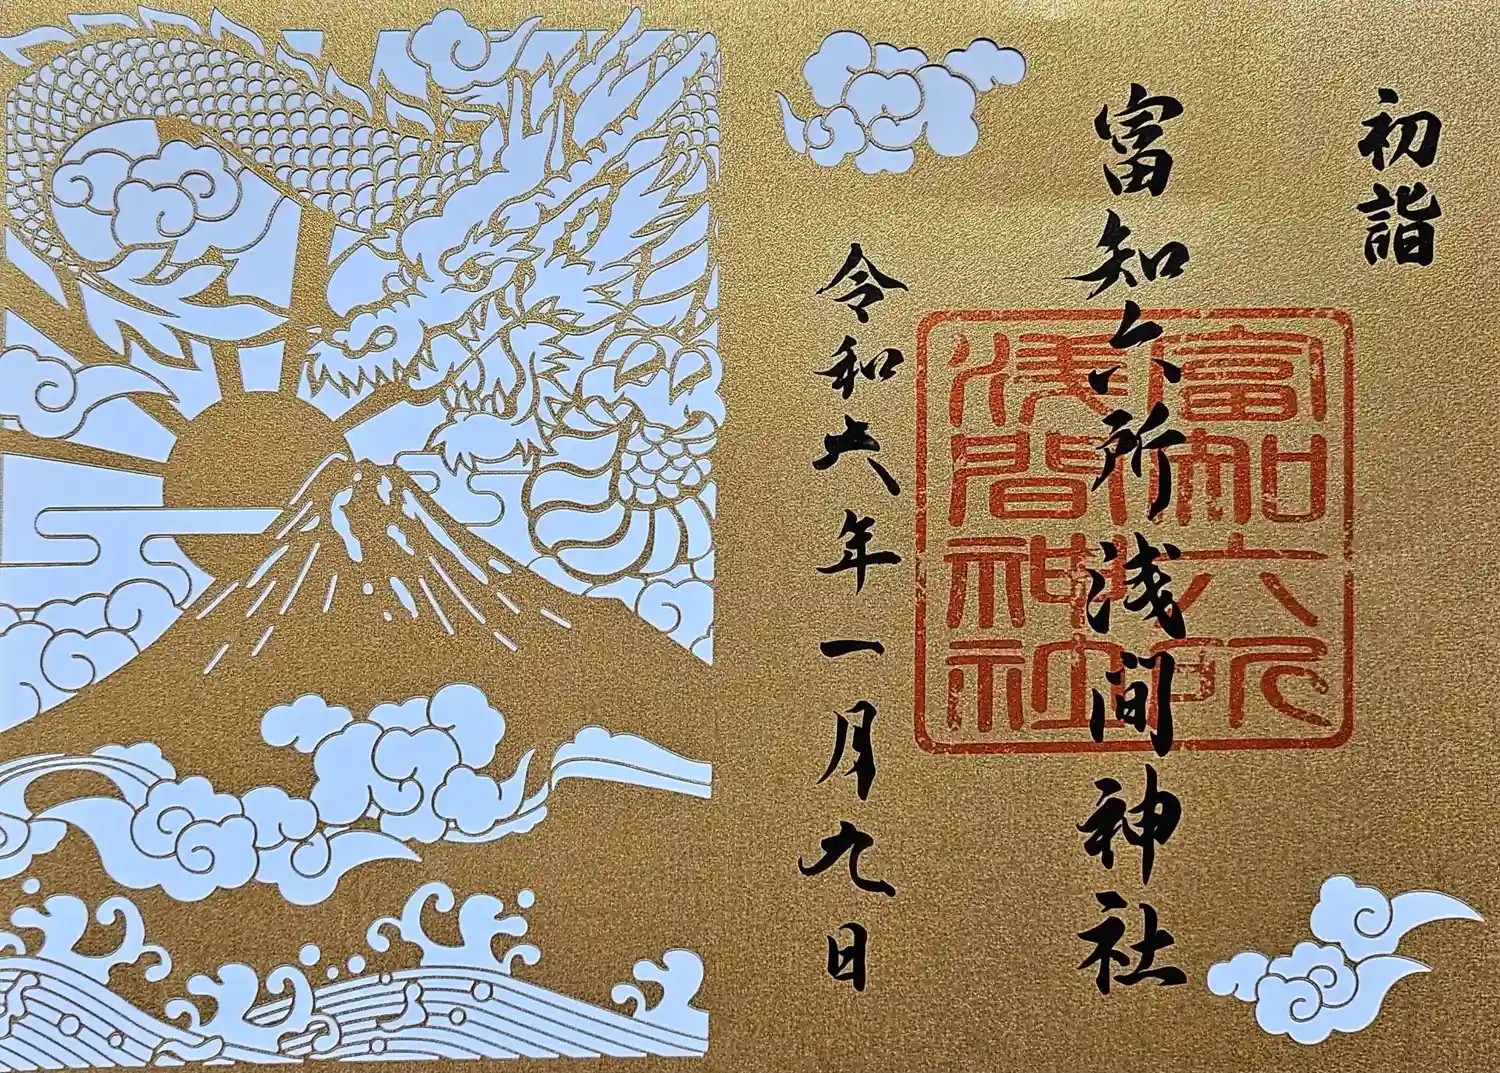 初詣
富知六所浅間神社
富知六所
浅間神社
令和六年一月九日